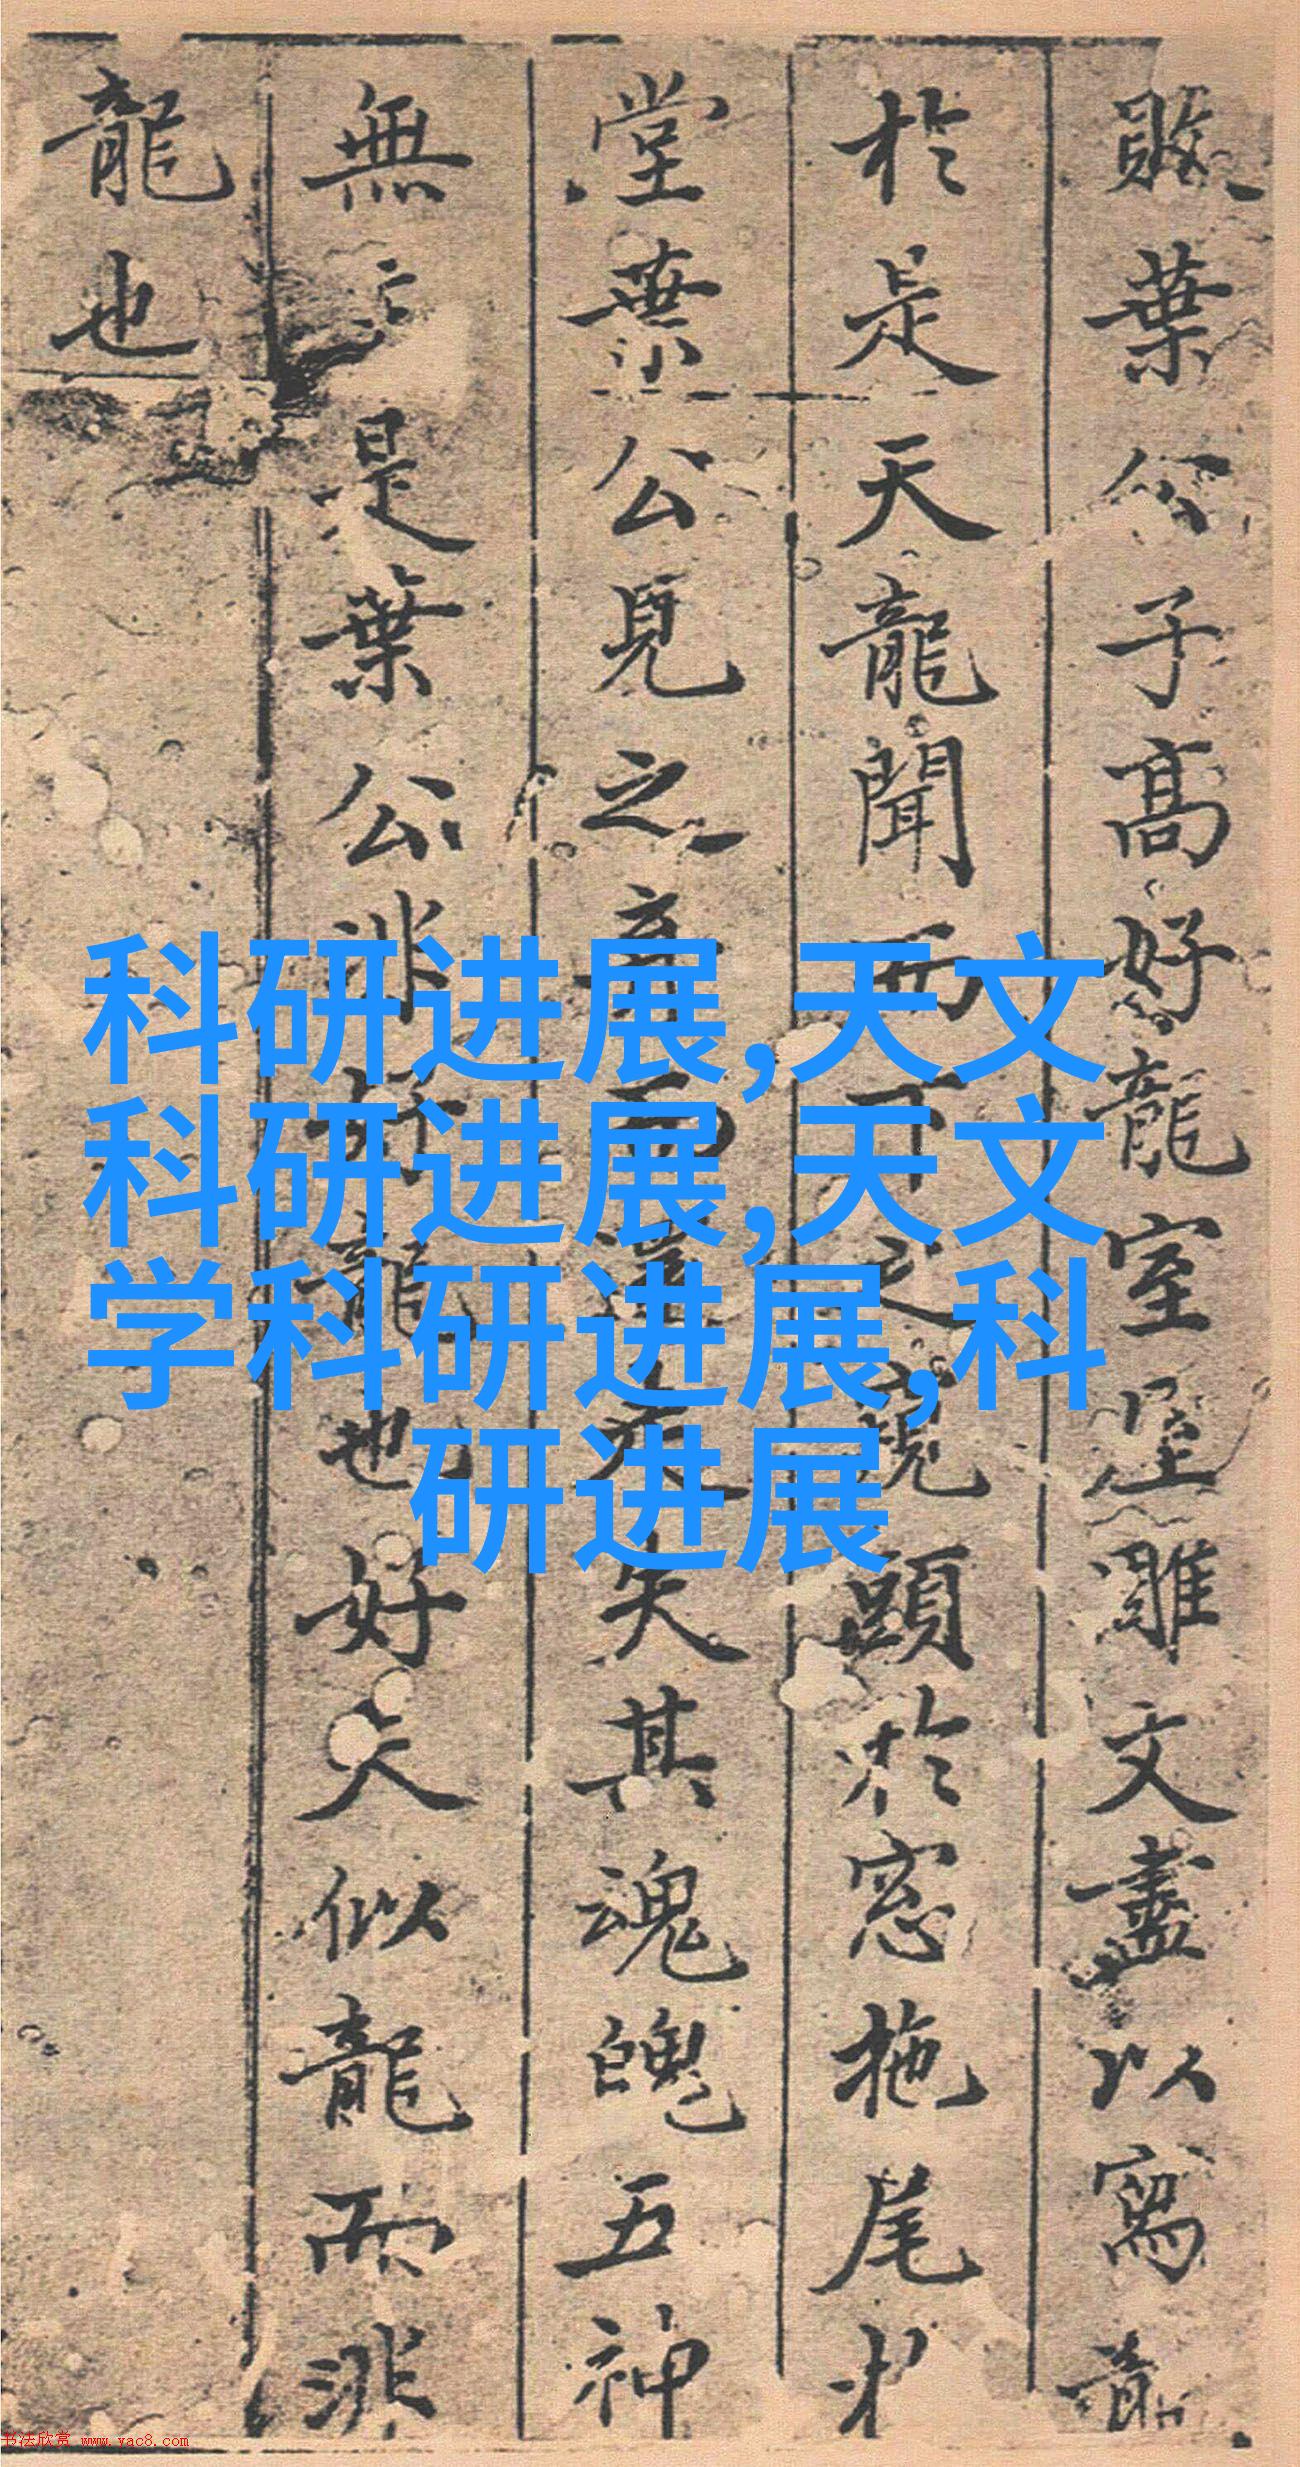 敗葉公子高好龍室屋雕文盡以寫龍
於是天龍聞而下之窺頭於窓拖尾於
堂葉公見之棄而還走失其魂魄五神
無主是葉公非好龍也好夫似龍而非
龍也
科研进展,天文
科研进展,天文
学科研进展,科
研进展
书法欣赏 www.yac8.com